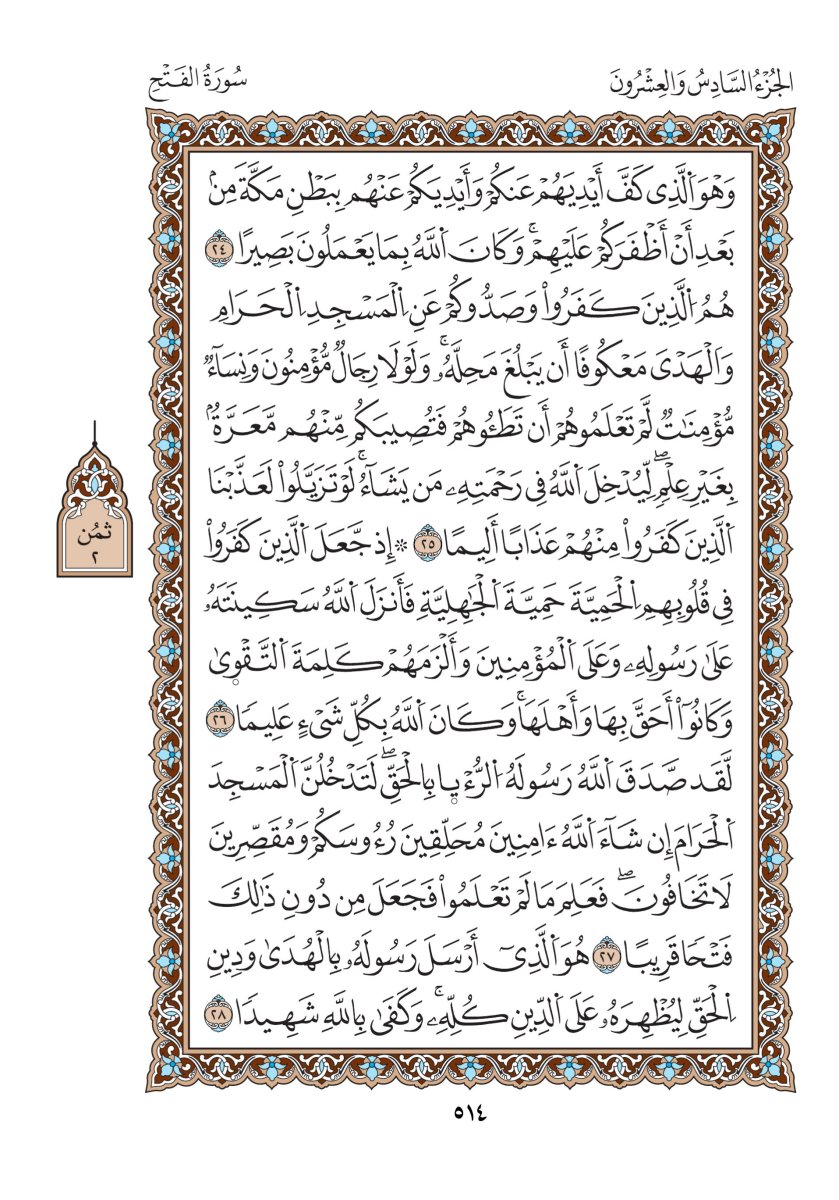 الجُزْءُ السَّادِسُ وَالعِشْرُونَ
سُورَةُ الفَتْحِ
وَهْوَ اَ۬لذِے كَفَّ أَيْدِيَهُمْ عَنكُمْ وَأَيْدِيَكُمْ عَنْهُم بِبَطْنِ مَكَّةَ مِنۢ
بَعْدِ أَنْ أَظْفَرَكُمْ عَلَيْهِمْۚ وَكَانَ اَ۬للَّهُ بِمَا يَعْمَلُونَ بَصِيرًا ٢٤
هُمُ اُ۬لذِينَ كَفَرُواْ وَصَدُّوكُمْ عَنِ اِ۬لْمَسْجِدِ اِ۬لْحَرَامِ
وَالْهَدْيَ مَعْكُوفًا أَن يَبْلُغَ مَحِلَّهُۥۚ وَلَوْلَا رِجَالٌ مُّؤْمِنُونَ وَنِسَآءٌ
مُّؤْمِنَٰتٌ لَّمْ تَعْلَمُوهُمْ أَن تَطَـُٔوهُمْ فَتُصِيبَكُم مِّنْهُم مَّعَرَّةُۢ
بِغَيْرِ عِلْمٍۖ لِّيُدْخِلَ اَ۬للَّهُ فِي رَحْمَتِهِۦ مَن يَشَآءُۚ لَوْ تَزَيَّلُواْ لَعَذَّبْنَا
اَ۬لذِينَ كَفَرُواْ مِنْهُمْ عَذَابًا أَلِيمًا ٢٥ * إِذ جَّعَلَ اَ۬لذِينَ كَفَرُواْ
فِي قُلُوبِهِمِ اِ۬لْحَمِيَّةَ حَمِيَّةَ اَ۬لْجَٰهِلِيَّةِ فَأَنزَلَ اَ۬للَّهُ سَكِينَتَهُۥ
عَلَىٰ رَسُولِهِۦ وَعَلَى اَ۬لْمُؤْمِنِينَ وَأَلْزَمَهُمْ كَلِمَةَ اَ۬لتَّقْوٜىٰ
وَكَانُوٓاْ أَحَقَّ بِهَا وَأَهْلَهَاۚ وَكَانَ اَ۬للَّهُ بِكُلِّ شَےْءٍ عَلِيمًا ٢٦
لَّقَد صَّدَقَ اَ۬للَّهُ رَسُولَهُ اُ۬لرُّءْيٜا بِالْحَقِّۖ لَتَدْخُلُنَّ اَ۬لْمَسْجِدَ
اَ۬لْحَرَامَ إِن شَآءَ اَ۬للَّهُ ءَامِنِينَ مُحَلِّقِينَ رُءُوسَكُمْ وَمُقَصِّرِينَ
لَا تَخَافُونَۖ فَعَلِمَ مَا لَمْ تَعْلَمُواْ فَجَعَلَ مِن دُونِ ذَٰلِكَ
فَتْحًا قَرِيبًا ٢٧ هُوَ اَ۬لذِےٓ أَرْسَلَ رَسُولَهُۥ بِالْهُدَىٰ وَدِينِ
اِ۬لْحَقِّ لِيُظْهِرَهُۥ عَلَى اَ۬لدِّينِ كُلِّهِۦۚ وَكَفَىٰ بِاللَّهِ شَهِيدًا ٢٨
ثُمُن
٢
٥١٤